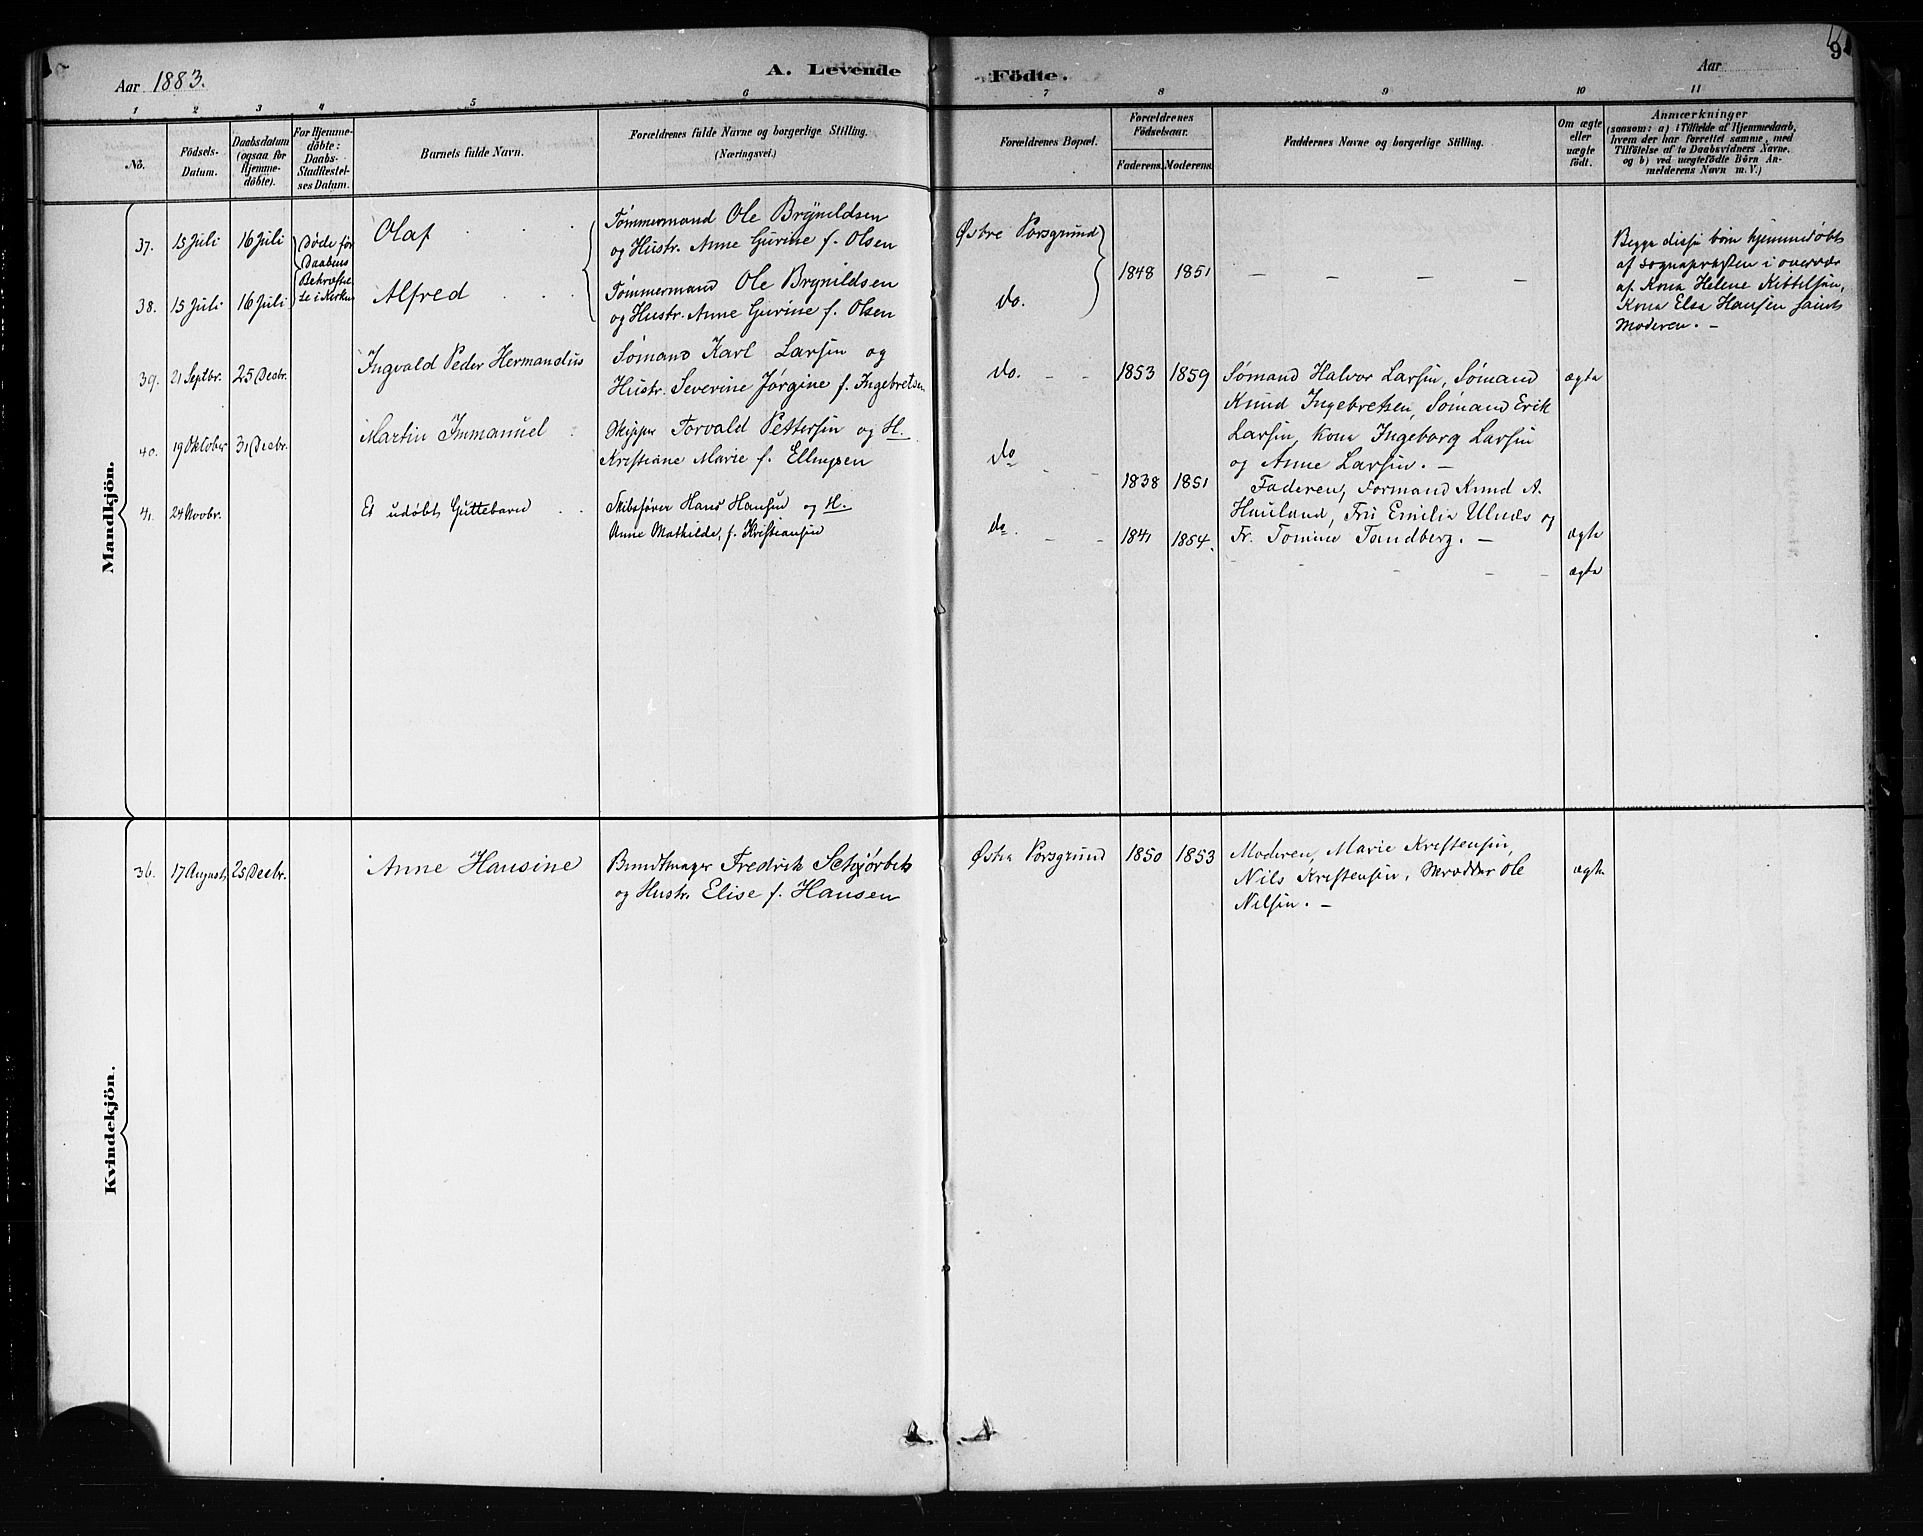 Aar 1883.
A. Levende
Födte.
Aar
9
1 2 3 4 5 6 7 8 9 10 11
No.
Födsels-
Datum.
Daabsdatum
(ogsaa for
Hjemme-
döbte).
For Hjemme-
döbte:
Daabs-
Stadfæstel-
ses Datum.
Barnets fulde Navn.
Forældrenes fulde Navne og borgerlige Stilling.
(Næringsvei.)
Forældrenes Bopæl.
Forældrenes
Födselsaar.
Faderens. Moderens.
Faddernes Navne og borgerlige Stilling.
Om ægte
eller
uægte
födt.
Anmærkninger
(saasom: a) i Tilfælde af Hjemmedaab,
hvem der har forrettet samme, med
Tilföielse af to Daabsvidners Navne,
og b) ved uægtefödte Börn An-
melderens Navn m. V.)
Mandkjön.
37. 15 Juli 16 Juli
Døde før
Daabens
Bekræftel
se i Kirken
Olaf
Tømmermand Ole Brynildsen
og Hustr. Anne Gurine f. Olsen
Østre Porsgrund
1848 1851
Begge disse børn hjemmedøbt
af Sognepræsten i overvær
af Kona Helene Kittilsen,
Kona Elsa Hansen samt
Moderen. –
38. 15 Juli 16 Juli
Alfred
Tømmermand Ole Brynildsen
og Hustr. Anne Gurine f. Olsen
Do.
39. 21 Septbr. 25 Decbr.
Ingvald Peder Hermandus
Sømand Karl Larsen og
Hustr. Severine Jørgine f. Ingebretsen
Do.
1853 1859
Sømand Halvor Larsen, Sømand
Knud Ingebretsen, Sømand Erik
Larsen, Kona Ingeborg Larsen
og Anne Larsen. –
ægte
40. 19 Oktober 31 Decbr.
Martin Immanuel
Skipper Torvald Pettersen og H.
Kristiane Marie f. Ellingsen
Do
1838 1851
Faderen, Formand Knud A.
Hauland, Fru Emilie Ulnæs og
Fr. Tomine Tandberg. –
ægte
41. 24 Novbr.
Et udøbt Guttebarn
Skibsfører Hans Hansen og H.
Anne Mathilde, f. Kristiansen
Do.
1841 1854.
ægte
Kvindekjön.
36. 17 August 25 Decbr.
Anne Hansine
Bundtmager Fredrik Schjørbek
og Hustr. Elise f. Hansen
Østre Porsgrund
1850 1853
Moderen, Marie Kristensen,
Nils Kristensen, Skrædder Ole
Nilsen. –
ægte